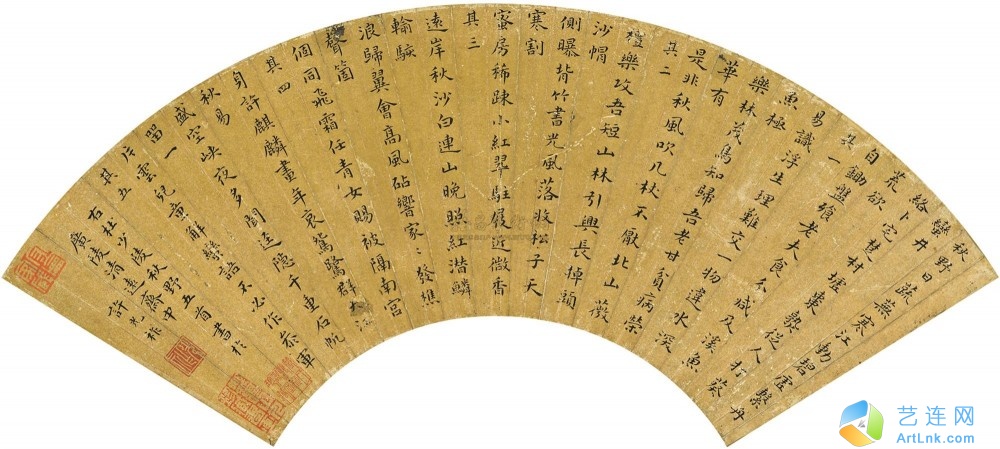 秋野日疏蕪寒江動碧虛繫舟
蠻井
絡卜宅楚村墟棗熟從人打葵
荒欲
自鋤盤飧老夫食分減及溪魚
其一
易識浮生理難交一物違水深
魚極
樂林茂鳥知歸吾老甘貧病榮
華有
是非秋風吹几杖不厭北山薇
其二
禮樂攻吾短山林引興長掉頭
沙帽
側曝背竹書光風落收松子天
寒割
蜜房稀疎小紅翠駐屐近微香
其三
遠岸秋沙白連山晚照紅潛鱗
輸駭
浪歸翼會高風砧響家々發樵
聲箇
個同飛霜任青女賜被隔南宮
其四
身許麒麟畫年衰鴛鷺群大江
秋易
盛空峽夜多聞逕隱千重石帆
留一
片雲兒童解蠻語不必作參軍
其五
右杜少陵秋野五首書於
廣陵清遠齋中
許光祚
艺连网
ArtLnk.com